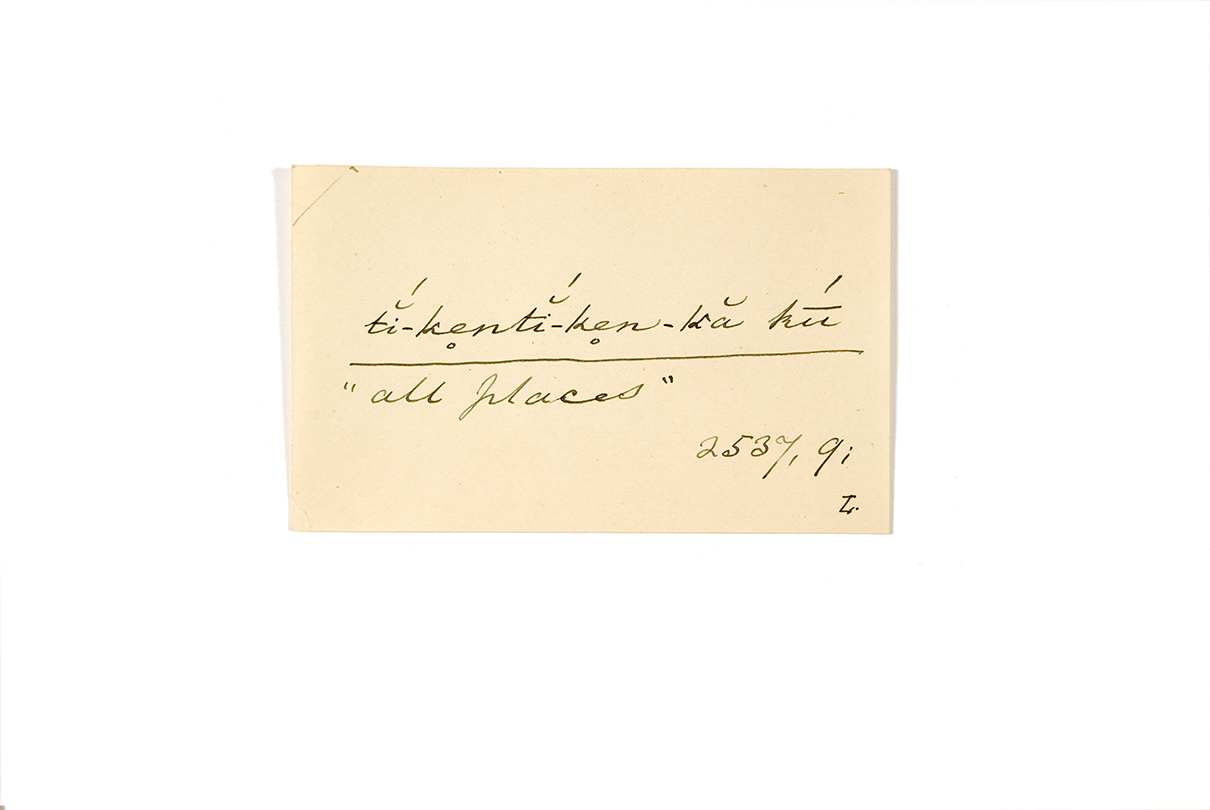 tĭ́-ke̥ntĭ́-ke̥n-kă kū́
"all places"
2537, 9;
L.